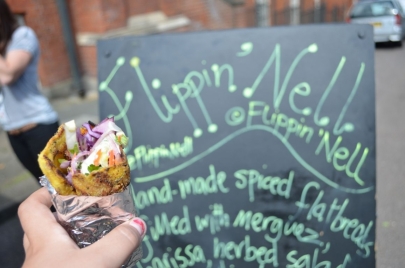 Flippin' Nell
@Flippin'Nell
Hand-made spiced flatbreads
filled with Merguez,
harissa, herbed salad